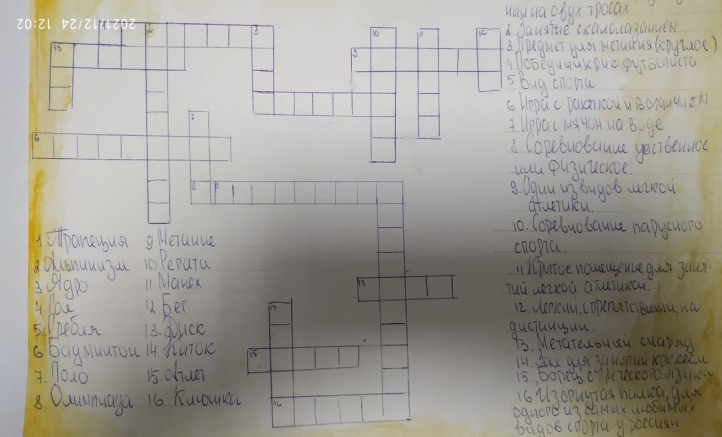 2021/12/24 12:02
1. Трапеция
2. Альпинизм
3. Ядро
4. Гол
5. Гребля
6. Бадминтон
7. Поло
8. Олимпиада
9. Метание
10. Регата
11. Манеж
12. Бег
13. Диск
14. Каток
15. Атлет
16. Клюшка
на двух тросах
2. Занятие скалолазанием
3. Предмет для метания (круглое)
4. футболиста
5 Вид спорта
6 Игра с ракеткой и воланчиком
7 Игра с мячом на воде
8. Соревнование умственное
или физическое.
9. Один из видов легкой
атлетики.
10. Соревнование парусного
спорта.
11 Крытое помещение для заня-
тий легкой атлетикой.
12. на
дистанции.
13. Метательный снаряд
14. Зал для занятий
15. Борец с греческого языка
16 Изогнутая палка, для
одного из самых любимых
видов спорта у россиян.